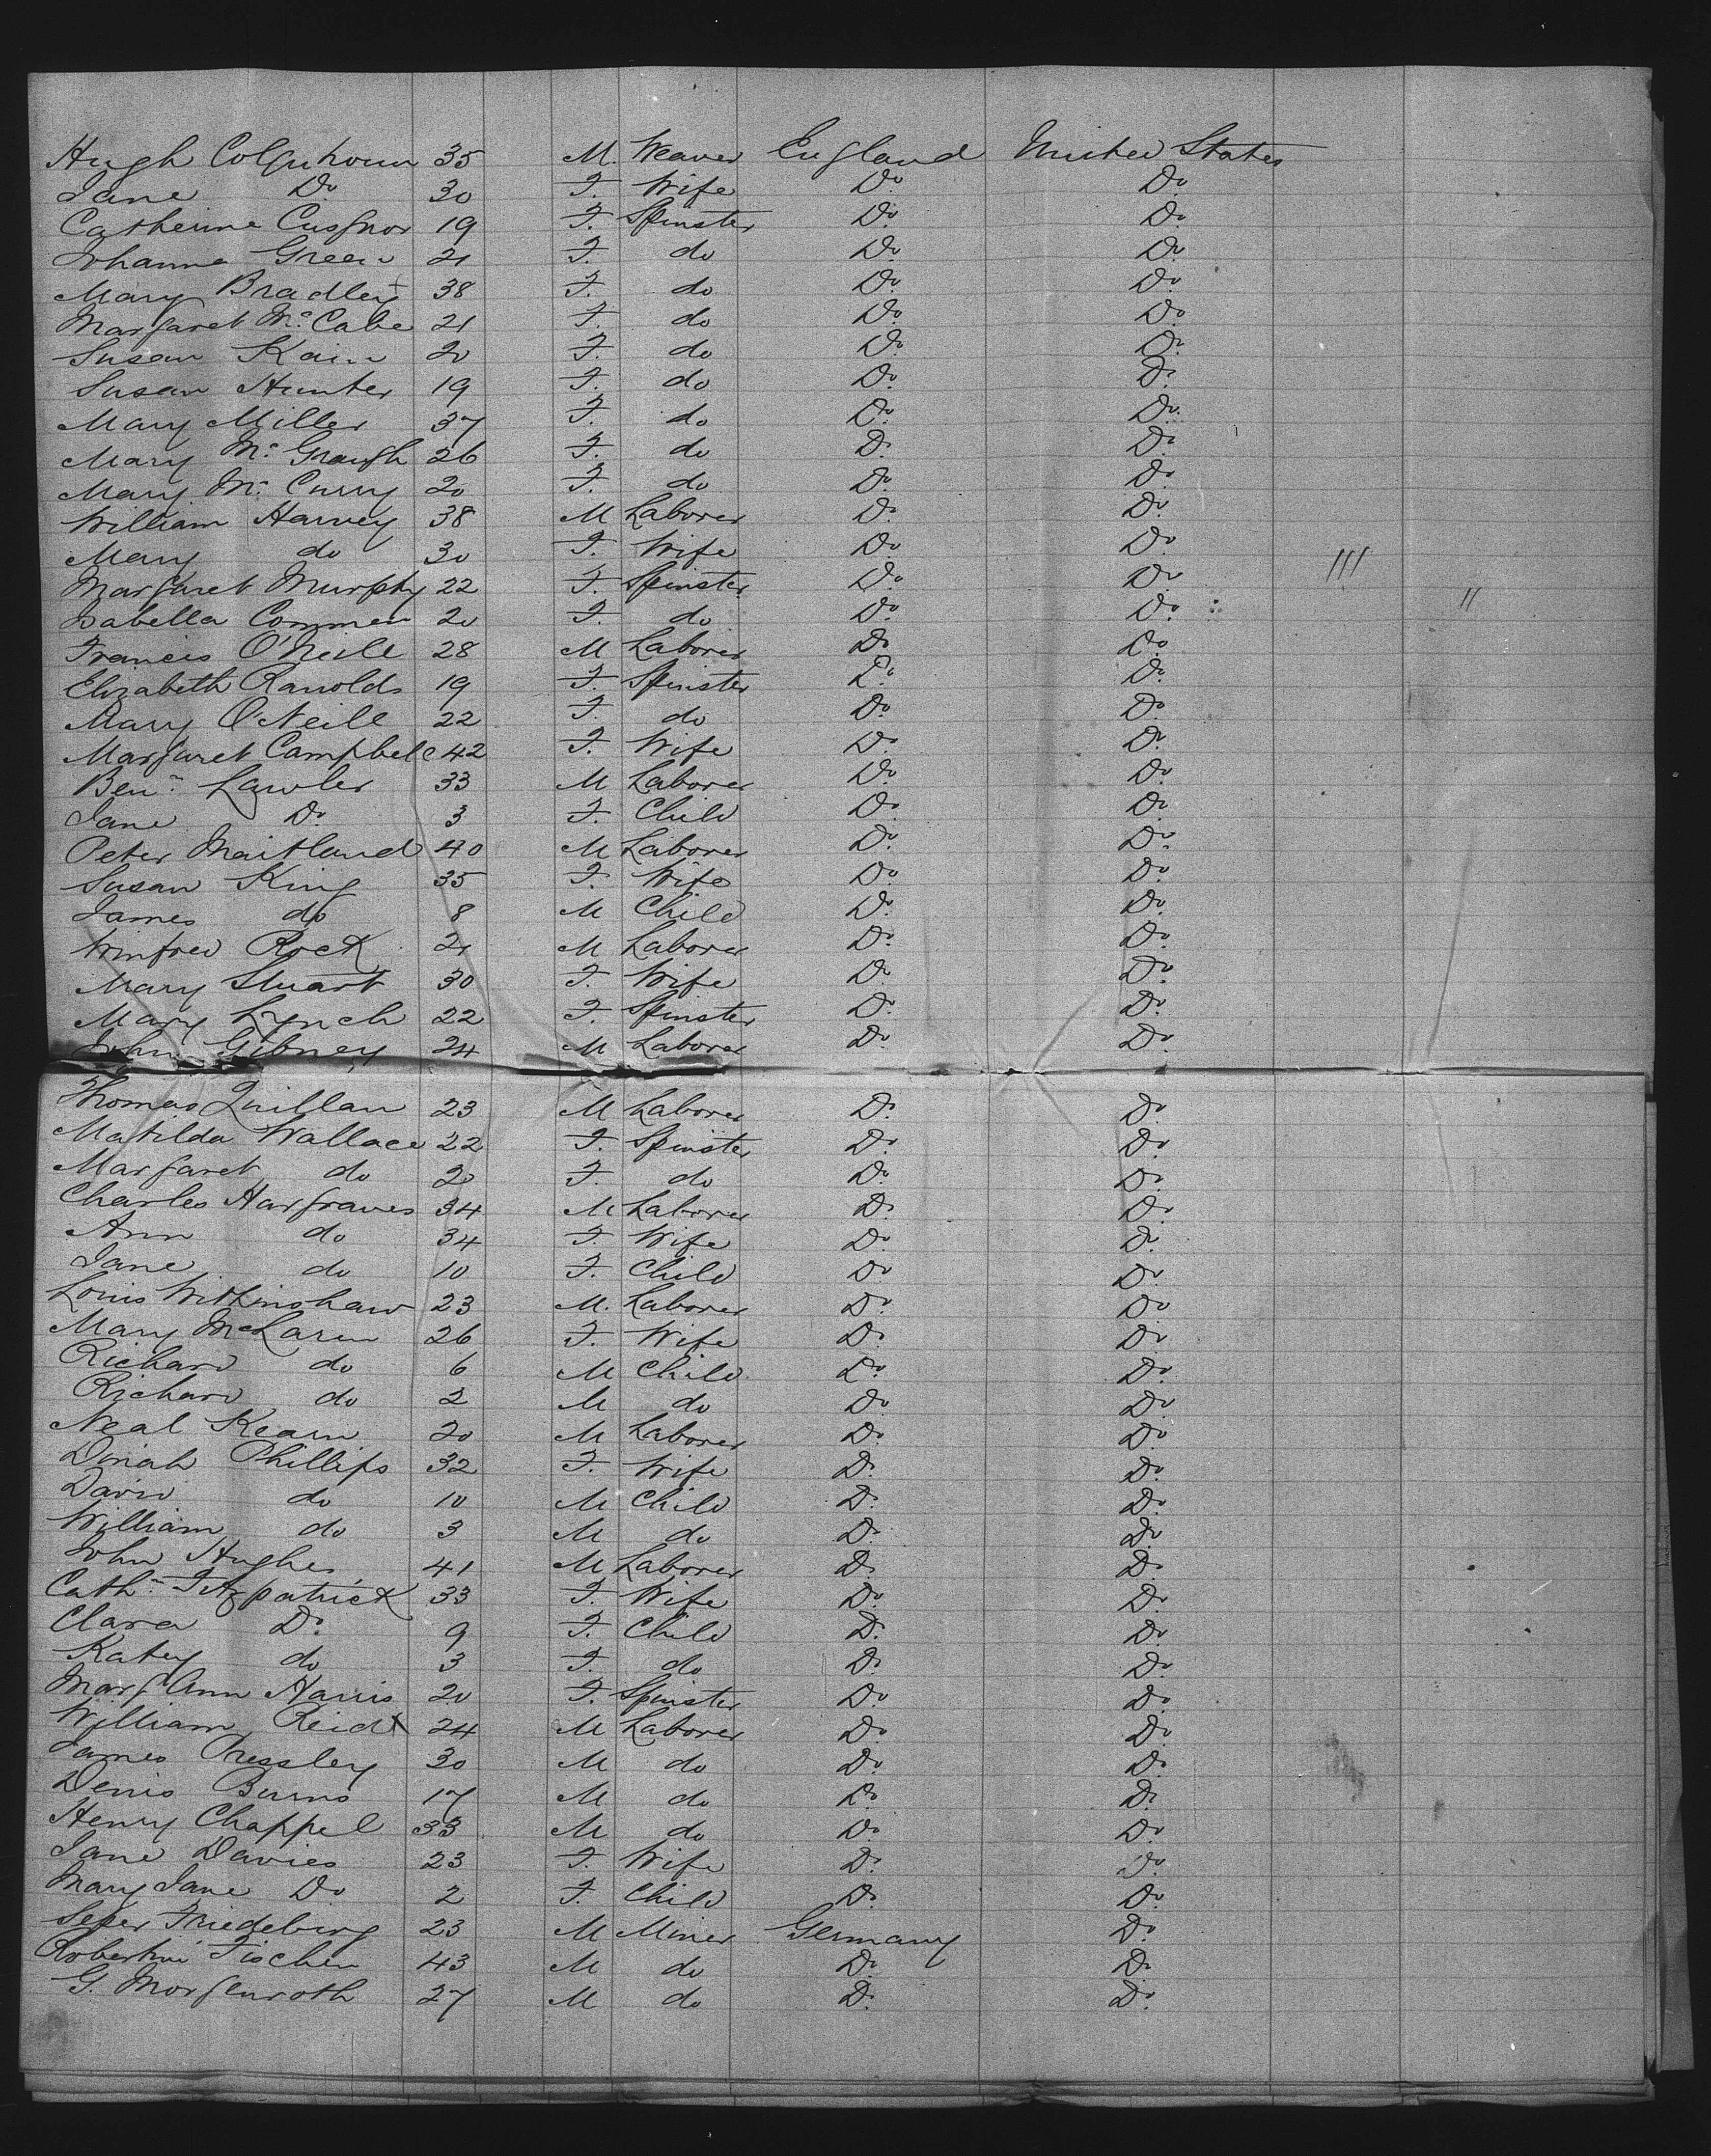 Hugh Colquhoun 35 M. Weaver England United States
Jane Do 30 F. Wife Do Do
Catherine 19 F. Spinster Do Do
Johanna Green 21 F. do Do Do
Mary Bradley 38 F. do Do Do
Margaret McCabe 21 F. do Do Do
Susan Kain 20 F. do Do Do
Susan Hunter 19 F. do Do Do
Mary Miller 37 F. do Do Do
Mary Mc 26 F. do Do Do
Mary Mc Curry 20 F. do Do Do
William Harvey 38 M Laborer Do Do
Mary do 30 F. Wife Do Do
Margaret Murphy 22 F. Spinster Do Do
Isabella 20 F. do Do Do
Francis O'Neile 28 M Laborer Do Do
Elizabeth Ranolds 19 F. Spinster Do Do
Mary O'Neile 22 F. do Do Do
Margaret Campbell 42 F. Wife Do Do
Ben. Lawler 33 M Laborer Do Do
Jane Do 3 F. Child Do Do
Peter Maitland 40 M Laborer Do Do
Susan King 35 F. Wife Do Do
James do 8 M Child Do Do
Winfred Rock 21 M Laborer Do Do
Mary Stuart 30 F. Wife Do Do
Mary Lynch 22 F. Spinster Do Do
John Gibney 24 M Laborer Do Do
Thomas Quillan 23 M Laborer Do Do
Matilda Wallace 22 F. Spinster Do Do
Margaret do 20 F. do Do Do
Charles Hargraves 34 M Laborer Do Do
Ann do 34 F. Wife Do Do
Jane do 10 F. Child Do Do
Louis 23 M. Laborer Do Do
Mary McLaren 26 F. Wife Do Do
Richard do 6 M Child Do Do
Richard do 2 M do Do Do
Neal Kearn 20 M Laborer Do Do
Dinah Phillips 32 F. Wife Do Do
David do 10 M Child Do Do
William do 3 M do Do Do
John Hughes 41 M Laborer Do Do
Cath. Fitzpatrick 33 F. Wife Do Do
Clara Do 9 F. Child Do Do
Katey do 3 F. do Do Do
Margt Ann Harris 20 F. Spinster Do Do
William Reid 24 M Laborer Do Do
James Pressley 30 M do Do Do
Denis Burns 17 M do Do Do
Henry Chappel 33 M do Do Do
Jane Davies 23 F. Wife Do Do
Mary Jane Do 2 F. Child Do Do
23 M Miner Germany Do
43 M do Do Do
G. Morgenroth 27 M do Do Do